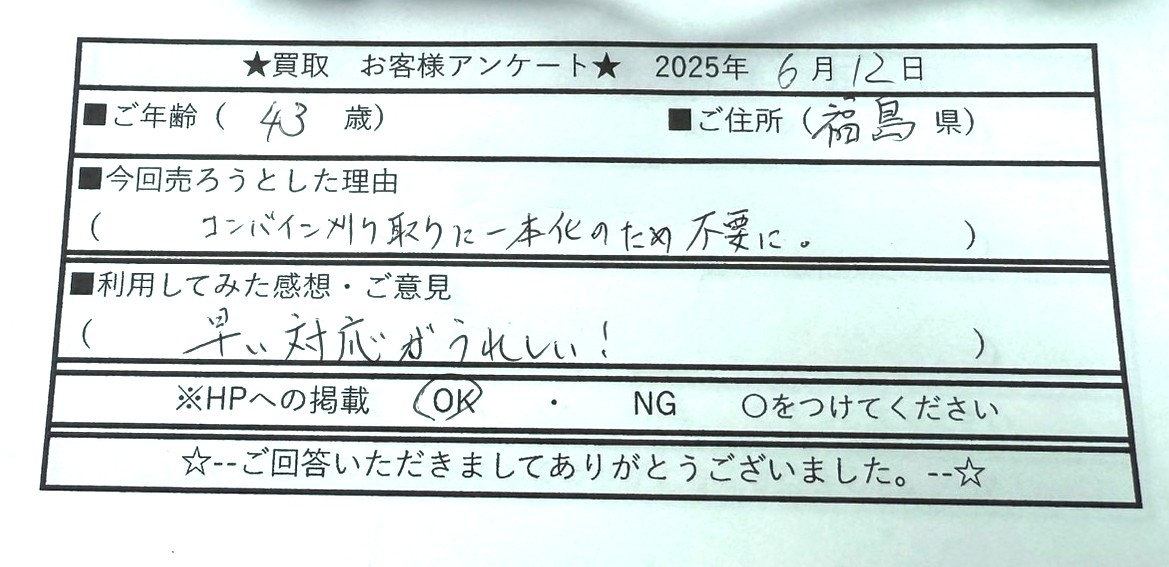 ★買取　お客様アンケート★　2025年 6月12日
■ご年齢（ 43 歳）　■ご住所（福島県）
■今回売ろうとした理由
（ コンバイン刈り取りに一本化のため不要に。 ）
■利用してみた感想・ご意見
（ 早い対応がうれしい！ ）
※HPへの掲載　OK　・　NG　〇をつけてください
☆--ご回答いただきましてありがとうございました。--☆